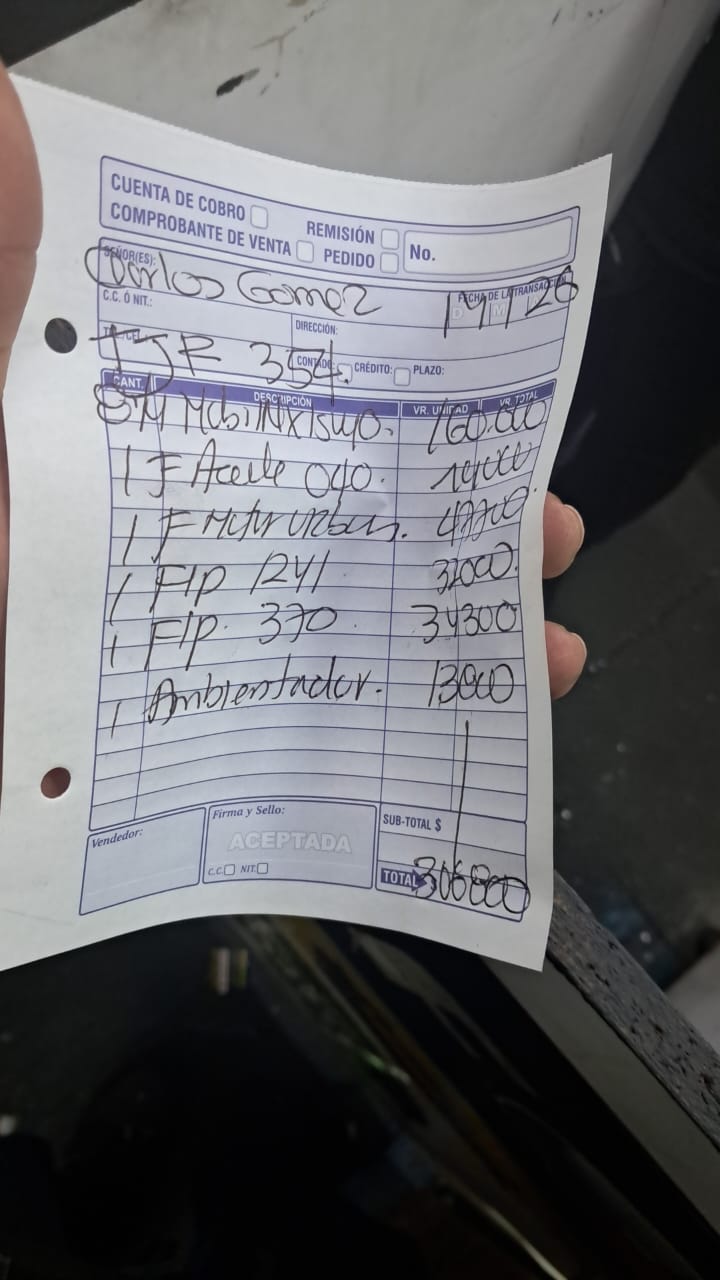 CUENTA DE COBRO
COMPROBANTE DE VENTA
REMISIÓN
PEDIDO
No.
SEÑOR(ES): Carlos Gomez
FECHA DE LA TRANSACCIÓN
C.C. Ó NIT.:
DIRECCIÓN:
TEL/CEL. JJR 354.
CONTADO: CRÉDITO: PLAZO:
CANT. DESCRIPCIÓN VR. UNIDAD VR. TOTAL
160.000
1 F Aceite 040.
1 F 47700.
1 F/p 1241 32000.
1 F/p. 370. 34300
1 Ambientador. 13000
Vendedor:
Firma y Sello:
ACEPTADA
C.C. NIT.
SUB-TOTAL $
TOTAL 306000